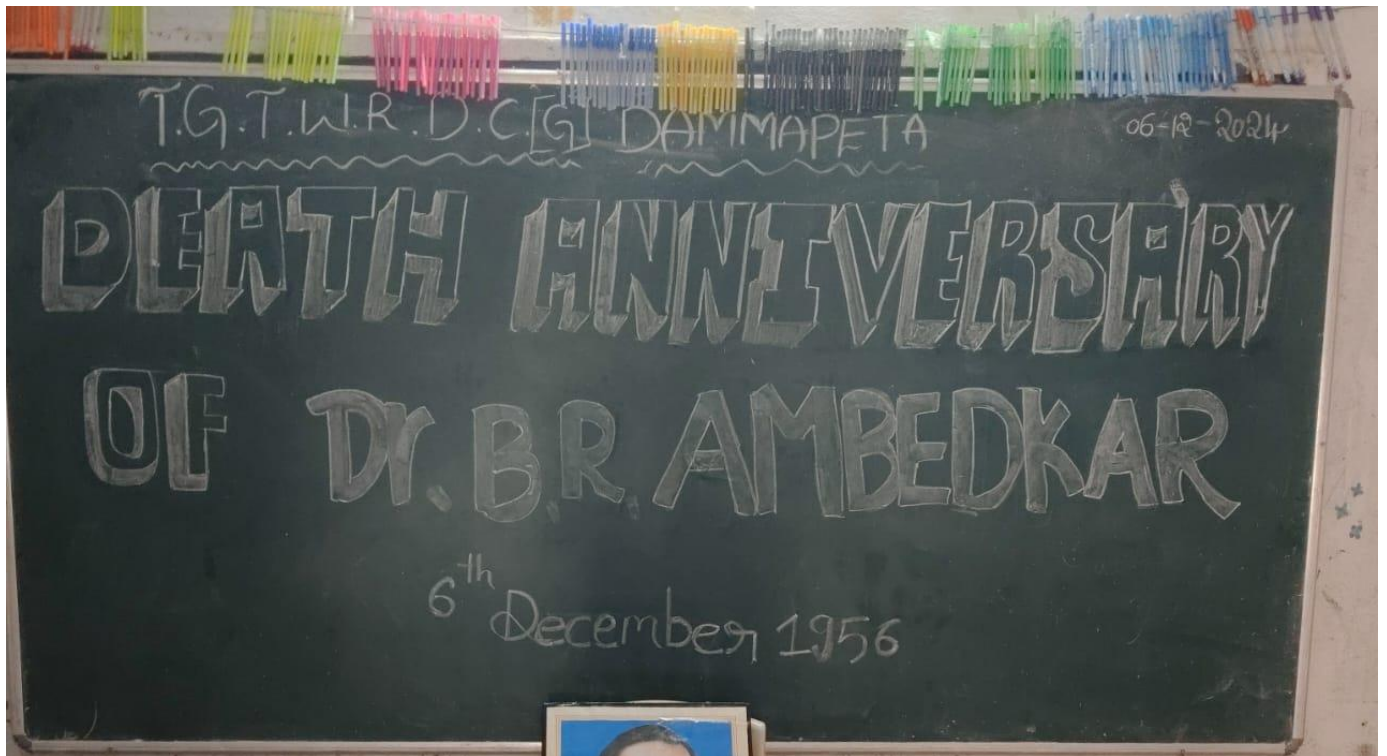 T.G.T.W.R.D.C.[G] DAMMAPETA
06-12-2024
DEATH ANNIVERSARY
OF Dr. B.R AMBEDKAR
6th December 1956